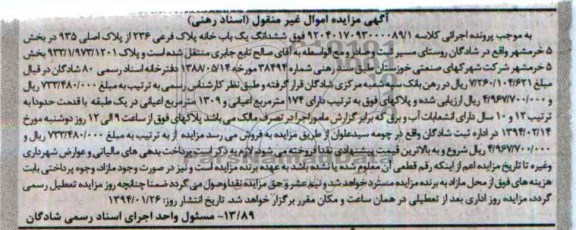 آگهی مزایده اموال غیر منقول (اسناد رهنی)
به موجب پرونده اجرائی کلاسه 9204017093000089/1 فوق ششدانگ یک باب خانه پلاک فرعی 236 از پلاک اصلی 935 در بخش
5 خرمشهر واقع در شادگان روستای مسیر و حدان مع الواسطه به آقای صالح تابع جابری منتقل شده است و پلاک 933/1/973/1201 بخش
5 خرمشهر شرکت شهرکهای صنعتی خوزستان طبق سند رهنی شماره 38494 مورخه 1388/05/14 دفترخانه اسناد رسمی 80 شادگان در قبال
مبلغ 7/260/104/621 ریال در رهن بانک سپه شعبه مرکزی شادگان قرار گرفته و طبق نظر کارشناس رسمی به ترتیب به مبلغ 732/480/000 ریال
و 4/967/700/000 ریال ارزیابی شده و پلاکهای فوق به ترتیب دارای 174 مترمربع اعیانی و 1309 مترمربع اعیانی در یک طبقه با قدمت حدودا به
ترتیب 12 و 10 سال دارای انشعابات آب و برق که برابر گزارش مامور اجرا در تصرف مالک می باشد پلاکهای فوق از ساعت 9 الی 12 روز دوشنبه مورخ
1394/02/14 در اداره ثبت شادگان واقع در چومه سیدعلوان از طریق مزایده به فروش می رسد مزایده از به ترتیب به مبلغ 732/480/000 ریال و
4/967/700/000 ریال شروع و به بالاترین قیمت پیشنهادی نقدا فروخته می شود لازم به ذکر است پرداخت بدهی های مالیاتی و عوارض شهرداری
وغیره تا تاریخ مزایده اعم از اینکه رقم قطعی آن معلوم شده یا نشده باشد به عهده برنده مزایده است و نیز در صورت وجود مازاد وجوه پرداختی بابت
هزینه های فوق از محل مازاد به برنده مزایده مسترد خواهد شد و نیم عشر و حق مزایده نقدا وصول می گردد ضمنا چنانچه روز مزایده تعطیل رسمی
گردد، مزایده روز اداری بعد از تعطیلی در همان ساعت و مکان مقرر برگزار خواهد شد. تاریخ انتشار روز: 1394/01/26
13/89- مسئول واحد اجرای اسناد رسمی شادگان